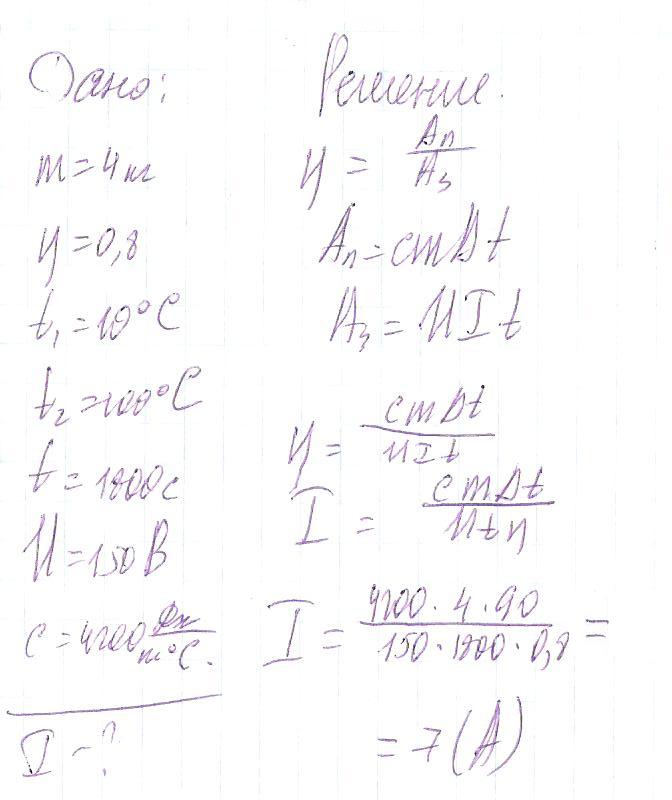 Дано:
m = 4 кг
η = 0,8
t₁ = 10°C
t₂ = 100°C
t = 1800 с
U = 150 В
c = 4200 Дж/кг°C.
I - ?
Решение.
η = Aп/Aз
Aп = cmΔt
Aз = UIt
η = cmΔt/UIt
I = cmΔt/Utη
I = 4200 · 4 · 90/150 · 1800 · 0,8 =
= 7 (А)